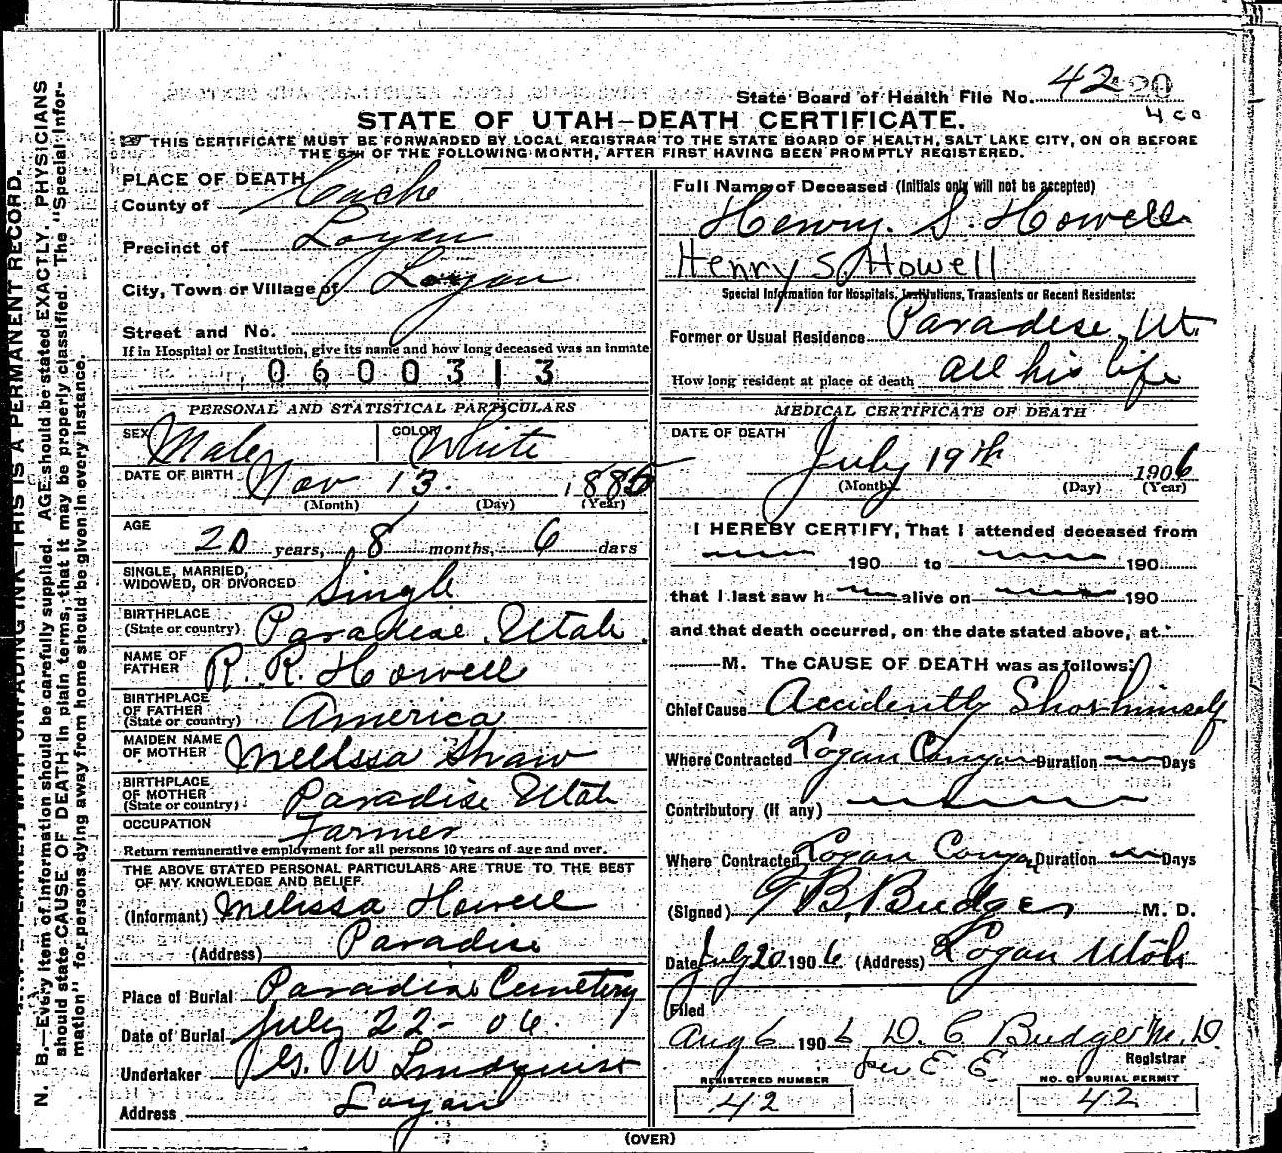 State Board of Health File No. 42
4 co
STATE OF UTAH—DEATH CERTIFICATE.
THIS CERTIFICATE MUST BE FORWARDED BY LOCAL REGISTRAR TO THE STATE BOARD OF HEALTH, SALT LAKE CITY, ON OR BEFORE
THE 5TH OF THE FOLLOWING MONTH, AFTER FIRST HAVING BEEN PROMPTLY REGISTERED.
PLACE OF DEATH
County of Cache
Precinct of Logan
City, Town or Village of Logan
Street and No.
If in Hospital or Institution, give its name and how long deceased was an inmate
0600313
PERSONAL AND STATISTICAL PARTICULARS
SEX Male COLOR White
DATE OF BIRTH Nov 13. 1885
(Month) (Day) (Year)
AGE
20 years, 8 months, 6 days
SINGLE, MARRIED,
WIDOWED, OR DIVORCED Single
BIRTHPLACE
(State or country) Paradise, Utah.
NAME OF
FATHER R. R. Howell
BIRTHPLACE
OF FATHER
(State or country) America
MAIDEN NAME
OF MOTHER Mellssa Shaw
BIRTHPLACE
OF MOTHER
(State or country) Paradise Utah
OCCUPATION Farmer
Return remunerative employment for all persons 10 years of age and over.
THE ABOVE STATED PERSONAL PARTICULARS ARE TRUE TO THE BEST
OF MY KNOWLEDGE AND BELIEF.
(Informant) Melissa Howell
(Address) Paradise
Place of Burial Paradise Cemetery
Date of Burial July 22 - 06.
Undertaker G. W Lindquist
Address Logan
Full Name of Deceased (Initials only will not be accepted)
Henry. S. Howell
Henry S. Howell
Special Information for Hospitals, Institutions, Transients or Recent Residents:
Former or Usual Residence Paradise, Ut.
How long resident at place of death all his life
MEDICAL CERTIFICATE OF DEATH
DATE OF DEATH
July 19th 1906
(Month) (Day) (Year)
I HEREBY CERTIFY, That I attended deceased from
190 to 190
that I last saw h alive on 190
and that death occurred, on the date stated above, at
M. The CAUSE OF DEATH was as follows:
Chief Cause Accidently Shot himself
Where Contracted Logan Canyon Duration Days
Contributory (if any)
Where Contracted Logan Canyon Duration Days
(Signed) T B. Budge M. D.
Date July 20 1906 (Address) Logan Utah
Filed
Aug 6 1906 D. C Budge M. D
per E E. Registrar
REGISTERED NUMBER NO. OF BURIAL PERMIT
42 42
(OVER)
N. B.—Every item of information should be carefully supplied. AGE should be stated EXACTLY. PHYSICIANS
should state CAUSE OF DEATH in plain terms, that it may be properly classified. The "Special Infor-
mation" for persons dying away from home should be given in every instance.
UNFADING INK—THIS IS A PERMANENT RECORD.